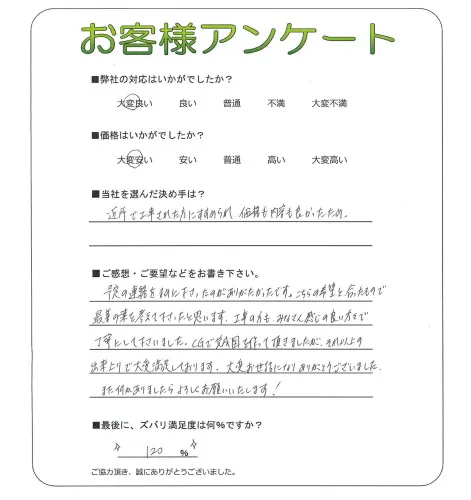 お客様アンケート
■弊社の対応はいかがでしたか？
大変良い 良い 普通 不満 大変不満
■価格はいかがでしたか？
大変安い 安い 普通 高い 大変高い
■当社を選んだ決め手は？
近所で工事された方にすすめられ、価格も内容も良かったため。
■ご感想・ご要望などをお書き下さい。
予定の連絡をまめに下さったのがありがたかったです。こちらの希望と合ったもので
最善の策を考えて下さったと思います。工事の方も、みなさん感じの良い方々で
丁寧にして下さいました。CGで完成図を作って頂きましたが、それ以上の
出来上りで大変満足しております。大変お世話になりありがとうございました。
また何かありましたらよろしくお願いいたします！
■最後に、ズバリ満足度は何%ですか？
120 %
ご協力頂き、誠にありがとうございました。